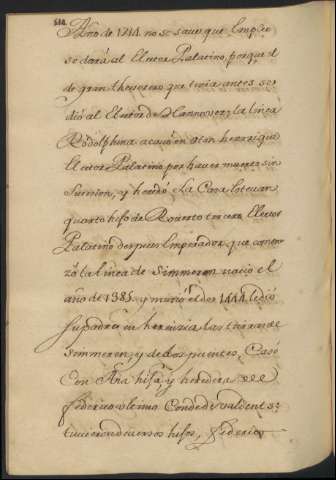 514.
Año de 1714. no se saue que Empleo
se dará al Elector Palatino, porque el
de gran thesorero que tenia antes se
dió al Elector de Hannover, la linea
Rodolphina acauó en othon henrrique
Elector Palatino por hauer muerto sin
Sucesion, y heredó la Casa
quarto hijo de Roberto tercero Elector
Palatino despues Emperador, que comen
zó la linea de Simmeren nació el
año de 1385. y murió el de 1444. le dió
su padre en herencia las tierras de
Semmeren, y de dos puentes, Casó
Con Ana hija, y heredera de
federico vltimo Conde de valdents
tuuieron diuersos hijos, federico